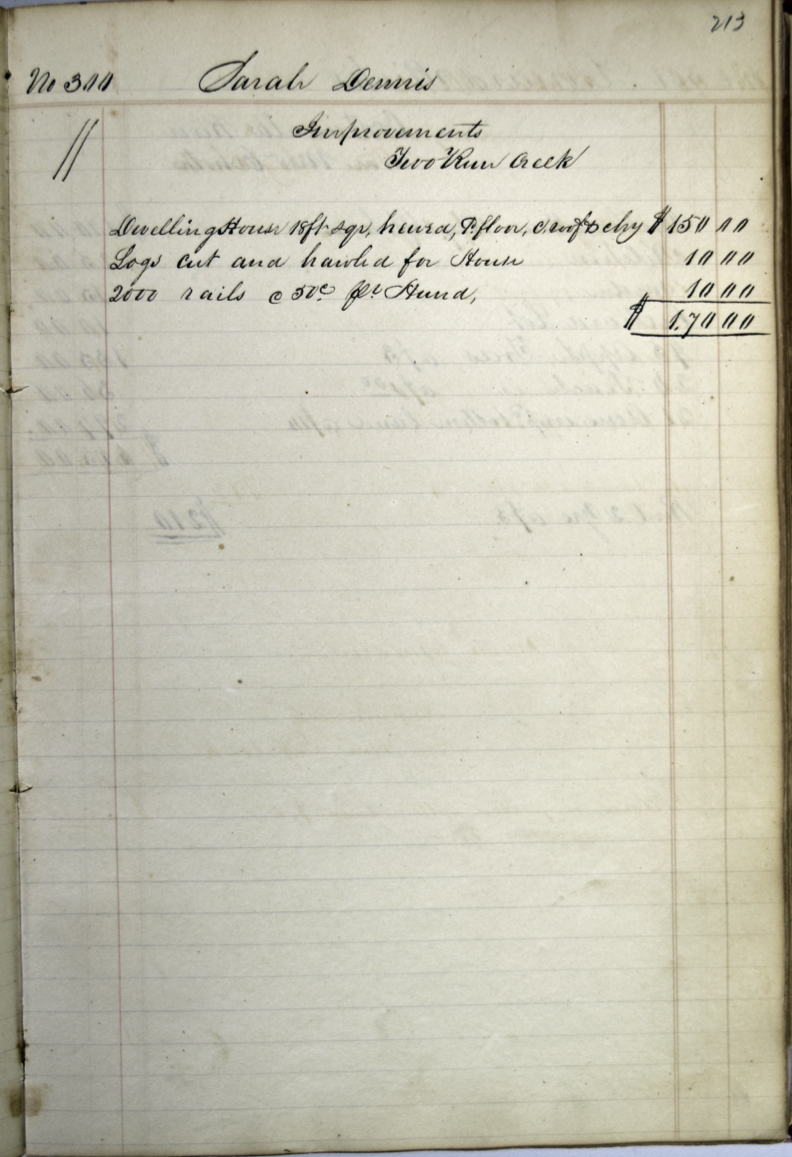 213
No 300 Sarah Dennis
// Improvements
Two Run Creek
Dwelling House 18ft sqr, hewed, P. floor, c roof & chy $ 150 00
Logs cut and hawled for House 10 00
2000 rails @ 50c pr Hund, 10 00
$ 170 00